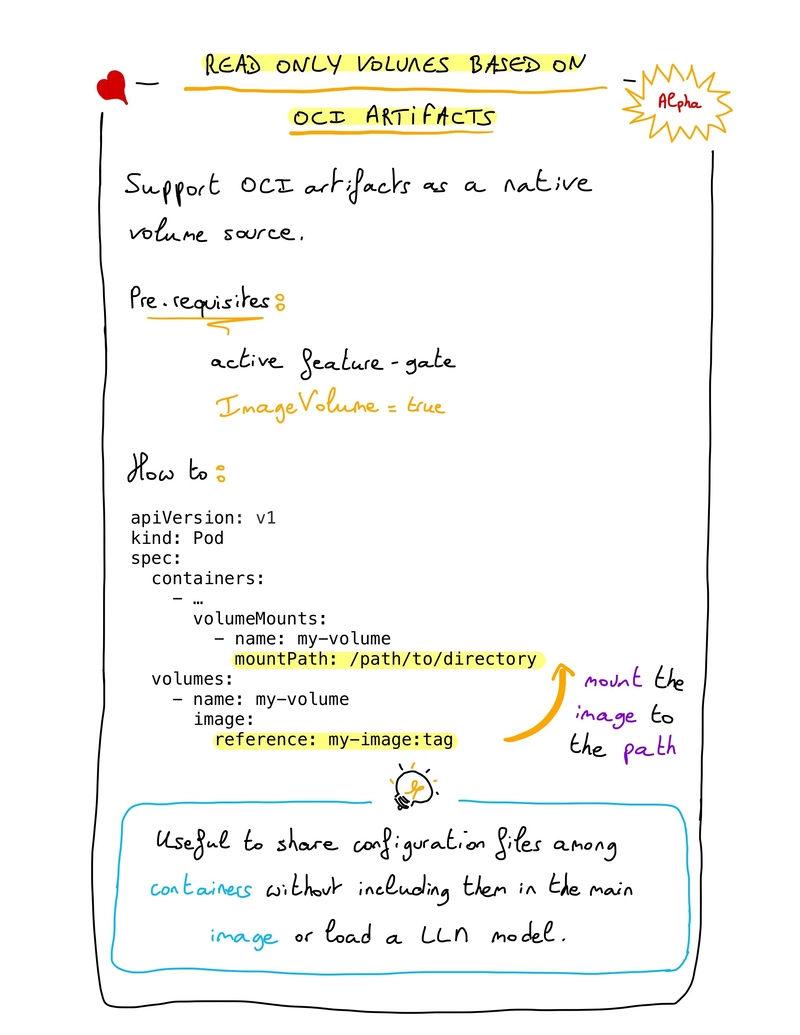 READ ONLY VOLUMES BASED ON
OCI ARTIFACTS
Alpha
Support OCI artifacts as a native
volume source.
Pre-requisites:
active feature-gate
ImageVolume = true
How to:
apiVersion: v1
kind: Pod
spec:
  containers:
    - …
      volumeMounts:
        - name: my-volume
          mountPath: /path/to/directory
  volumes:
    - name: my-volume
      image:
        reference: my-image:tag
mount the
image to
the path
Useful to share configuration files among
containers without including them in the main
image or load a LLM model.